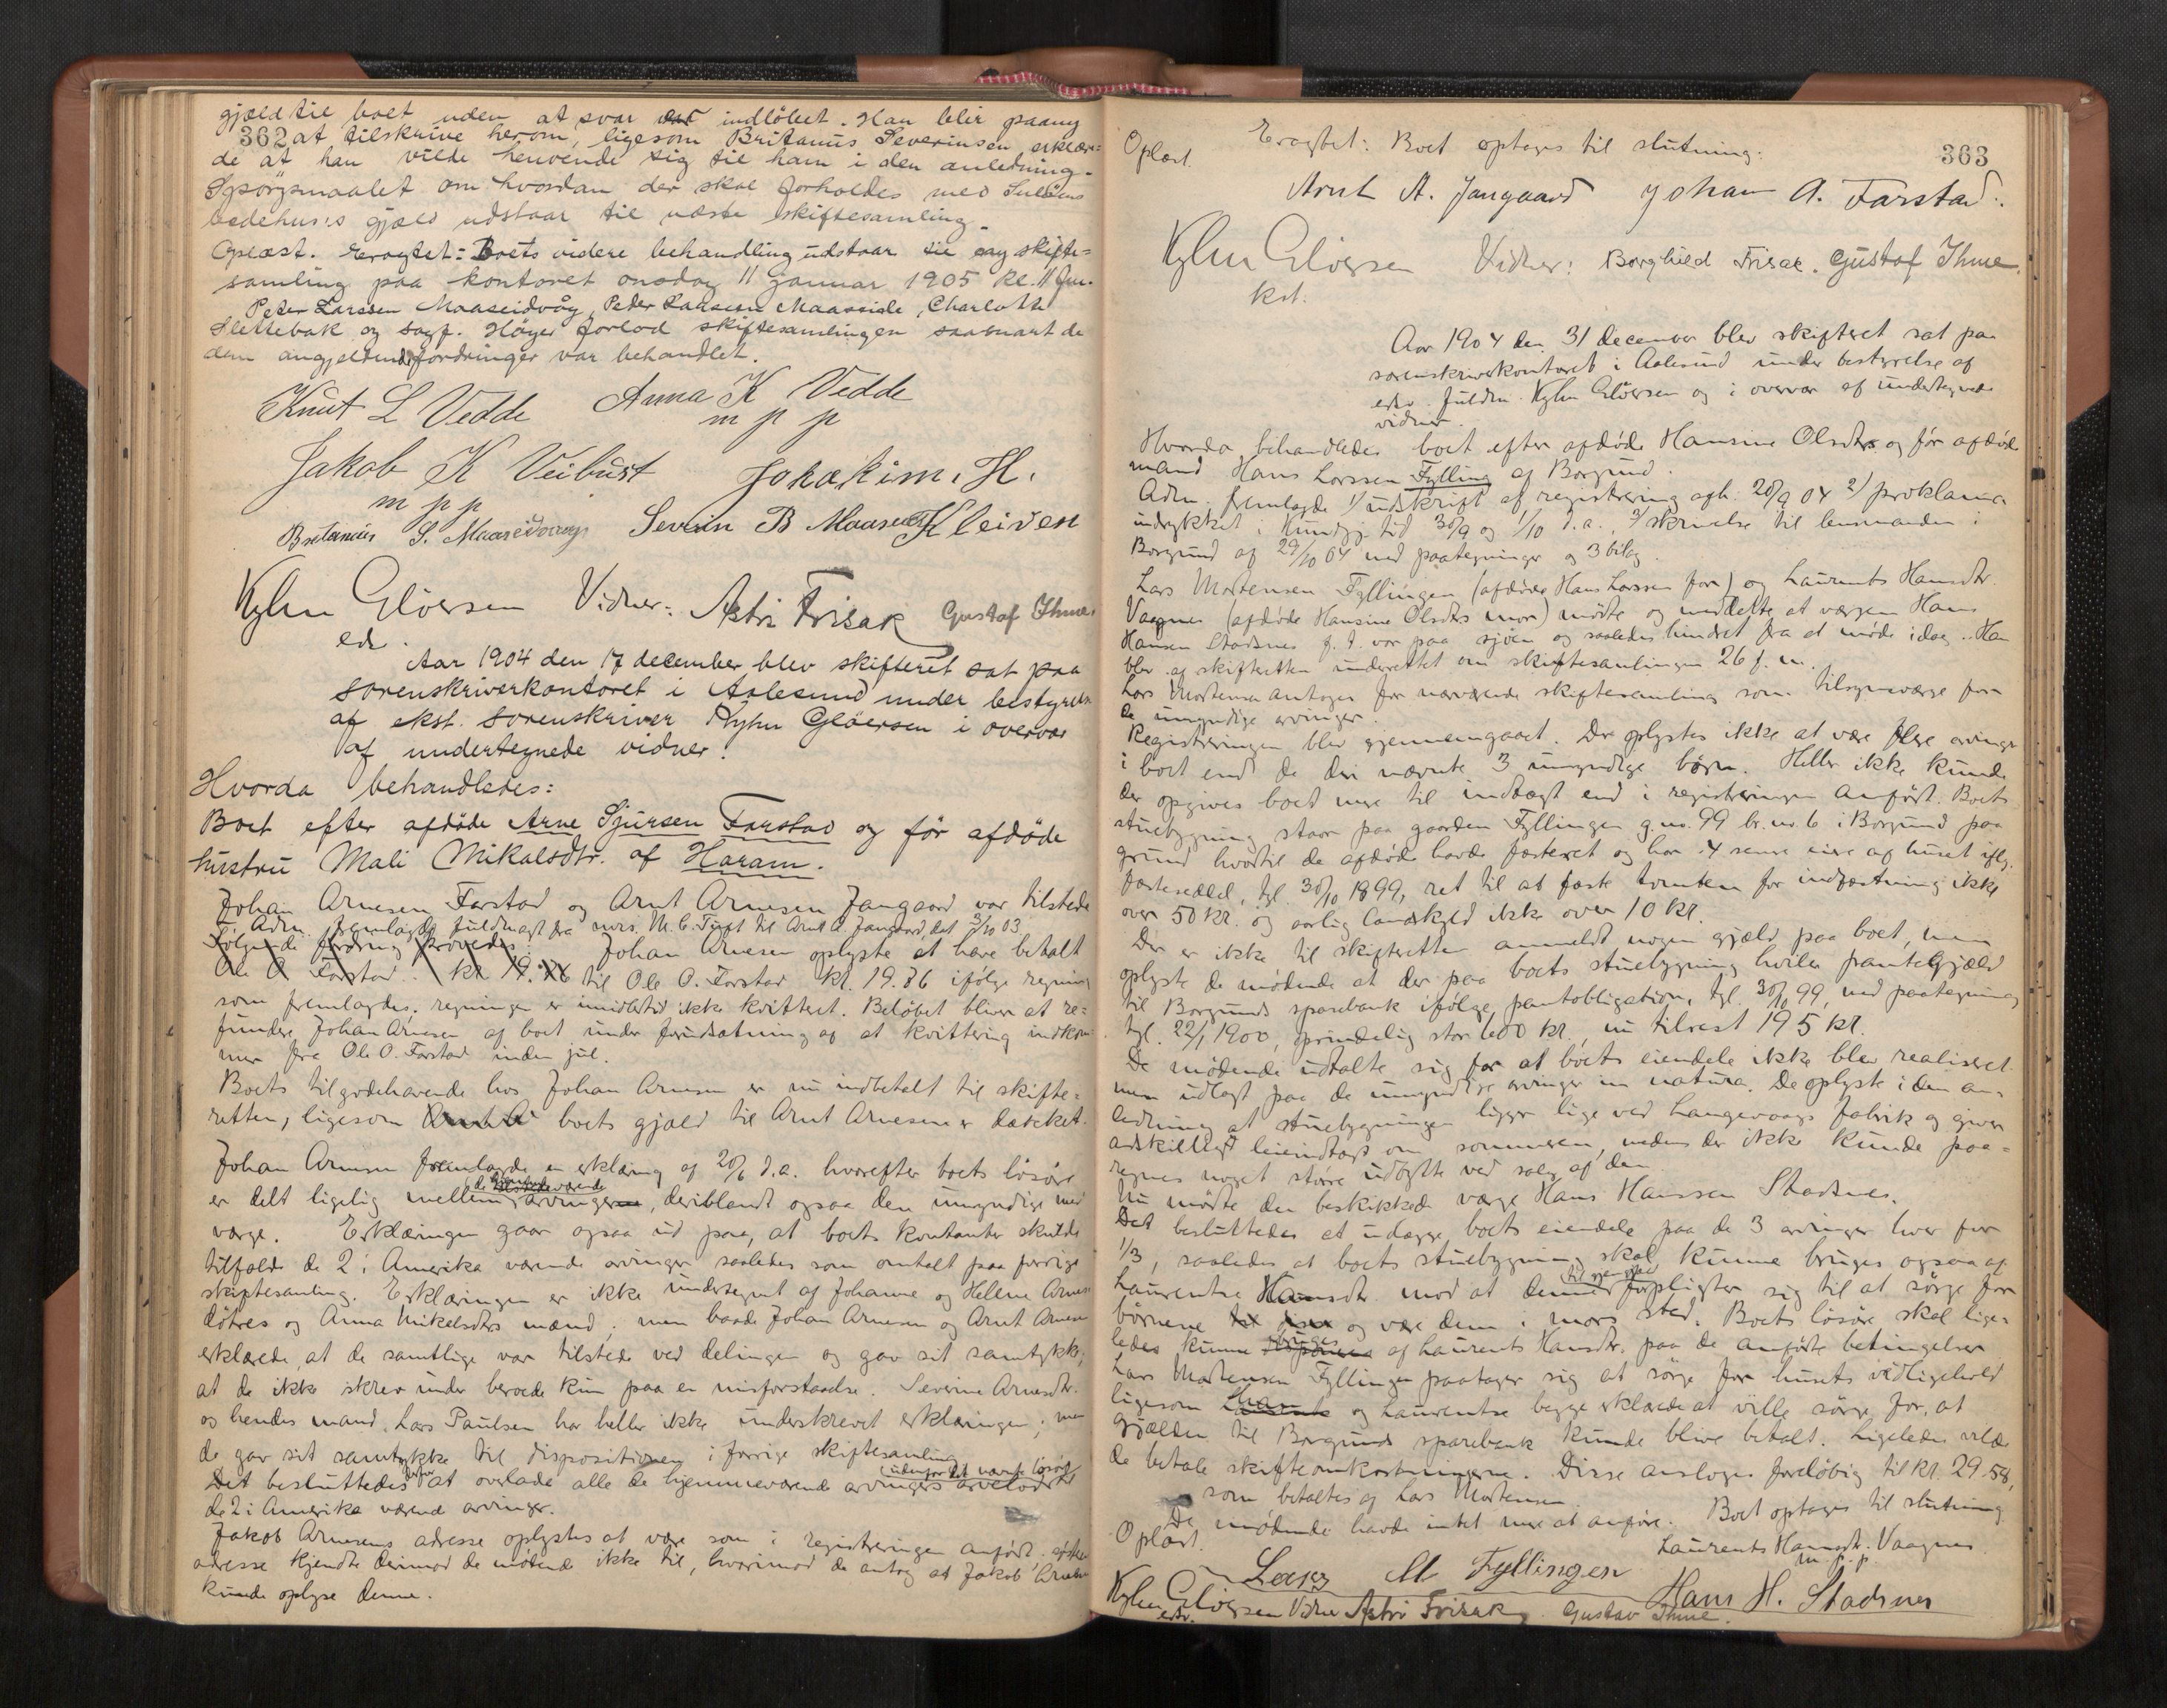 gjæld til boet uden at svar er indløbet. Han blir paany
362 at tilskrive herom, ligesom Britanus Severinsen erklære=
de at han vilde henvende sig til ham i den anledning.
Spørgsmaalet om hvordan der skal forholdes med Suløens
bedehus's gjæld udstaar til næste skiftesamling.
Oplæst. Eragtet: Boets videre behandling udstaar til ny skifte=
samling paa kontoret onsdag 11 januar 1905 kl. 11 fm.
Peter Larssen Maaseidvåg, Peder Larssen Maaseide, Charlotte
Slettebak og sagf. Høyer forlod skiftesamlingen saasnart de
dem angjeldende fordringer var behandlet.
Knut L Vedde Anna K Vedde
m p p
Jakob K Veibust Jokakim. H.
m p p
Britanius S. Maaseidvaag Severin B Maaseid Kleiven
Kyhn Gløersen Vidner: Astri Frisak Gustaf Thue.
edr.
Aar 1904 den 17 december blev skifteret sat paa
sorenskriverkontoret i Aalesund under bestyrelse
af ekst. sorenskriver Kyhn Gløersen i overvær
af undertegnede vidner.
Hvorda behandledes:
Boet efter afdøde Arne Sjursen Farstad og før afdøde
hustru Mali Mikalsdtr. af Haram.
Johan Arnesen Farstad og Arnt Arnesen Jangaard var tilstede
Adm. fremlagde fuldmagt fra mrs. M. C. Tuft til Arnt A. Jangaard, dat 3/10 03
Følgende fordring prøvedes: Johan Arnesen oplyste at have betalt
Ole O Farstad kr 19.76 til Ole O. Farstad kr. 19.76 ifølge regning
som fremlagdes; regningen er imidlertid ikke kvitteret. Beløbet bliver at re=
fundere Johan Arnesen af boet under forudsætning af at kvittering indkom=
mer fra Ole O. Farstad inden jul.
Boets tilgodehavende hos Johan Arnesen er nu indbetalt til skifte=
retten, ligesom boets gjæld til Arnt Arnesen er dækket.
Johan Arnesen fremlagde en erklæring af 20/6 d.a. hvorefter boets løsøre
er delt ligelig mellem de hjemmeværende arvinger, deriblandt ogsaa den umyndige med
værge. Erklæringen gaar ogsaa ud paa, at boets kontanter skulde
tilfalde de 2 i Amerika værende arvinger saaledes som omtalt paa forrige
skiftesamling. Erklæringen er ikke undertegnet af Johanne og Helene Arnes=
døtres og Anna Mikelsdtrs mænd; men baade Johan Arnesen og Arnt Arnesen
erklærede, at de samtlige var tilstede ved delingen og gav sit samtykke;
at de ikke skrev under beroede kun paa en misforstaaelse. Severine Arnesdtr.
og hendes mand Lars Paulsen har heller ikke underskrevet erklæringen; men
de gav sit samtykke til dispositionen i forrige skiftesamling
Det besluttedes derfor at overlade alle de hjemmeværende arvingers arvelodder (udenfor det nævnte løsøre) til
de 2 i Amerika værende arvinger.
Jakob Arnesens adresse oplystes at være som i registreringen anført. søsterens
adresse kjendte deimod de mødende ikke til, hvorimod de antog at Jakob Arnesen
kunde oplyse denne.
Oplæst. Eragtet: Boet optages til slutning: 363
Arnt A. Jangaard Johan A. Farstad.
Kyhn Gløersen Vidner: Borghild Frisak. Gustaf Thue.
kst.
Aar 1904 den 31 december blev skifteret sat paa
sorenskriverkontoret i Aalesund under bestyrelse af
edsv. fuldm. Kyhn Gløersen og i overvær af undertegnede
vidner.
Hvorda behandledes boet efter afdøde Hansine Olsdtr. og før afdøde
mand Hans Larssen Fylling af Borgund.
Adm. fremlagde 1/ udskrift af registrering afh. 20/9 04 2/ proklama
indrykket i Kundgj. tid 30/9 og 1/10 d.a. 3/ skrivelse til lensmanden i
Borgund af 29/10 04 med paategninger og 3 bilag.
Lars Mortensen Fyllingen (afdøde Hans Larssen far) og Laurentse Hansdtr.
Vaagnes (afdøde Hansine Olsdtrs mor) mødte og meddelte at værgen Hans
Hansen Stadsnes f. t. var paa sjøen og saaledes hindret fra at møde idag. Han
blev af skifteretten underrettet om skiftesamlingen 26 f. m.
Lars Mortensen antoges for nærværende skiftesamling som tilsynsværge for
de umyndige arvinger.
Registreringen blev gjennemgaaet. Der oplystes ikke at være flere arvinger
i boet end de der nævnte 3 umyndige børn. Heller ikke kunde
der opgives boet mere til indtægt end i registreringen anført. Boets
stuebygning staar paa gaarden Fyllingen g.no. 99 br.no. 6 i Borgund paa
grund hvortil de afdøde havde fæsteret og har senere eiere af huset iflg.
fæsteseddel, tgl. 30/10 1899, ret til at fæste tomten for indfæstning ikke
over 50 kr. og aarlig landskyld ikke over 10 kr.
Der er ikke til skifteretten anmeldt nogen gjæld paa boet, men
oplyste de mødende at der paa boets stuebygning hviler pantegjæld
til Borgunds sparebank ifølge pantobligation, tgl. 30/10 99, med paategning
tgl. 22/1 1900, oprindelig stor 600 kr., nu tilrest 195 kr.
De mødende udtalte sig for at boets eiendele ikke blev realiseret
men udlagt paa de umyndige arvinger in natura. De oplyste i den an=
ledning at stuebygningen ligger lige ved Langevaags fabrik og giver
adskilligt leieindtægt om sommeren, medens der ikke kunde paa=
regnes noget større udbytte ved salg af den
Nu mødte den beskikkede værge Hans Hanssen Stadsnes.
Det besluttedes at udlægge boets eiendele paa de 3 arvinger hver for
1/3, saaledes at boets stuebygning skal kunne bruges ogsaa af
Laurentse Hansdtr. mod at denne til gjengjæld forpligter sig til at sørge for
børnene og være dem i mors sted. Boets løsøre skal lige=
ledes kunne bruges af Laurents Hansdtr. paa de anførte betingelser
Lars Mortensen Fyllingen paatager sig at sørge for husets vedligehold
ligesom han og Laurentse begge erklærede at ville sørge for, at
gjælden til Borgunds sparebank kunde blive betalt. Ligeledes vilde
de betale skifteomkostningerne. Disse ansloges foreløbig til kr. 29.58,
som betaltes af Lars Mortensen.
De mødende havde intet mere at anføre. Boet optages til slutning
Oplæst. Laurents Hansdt. Vaagnes
m. p. p.
Lars M Fyllingen Hans H. Stadsnes
Kyhn Gløersen Vidner Astri Frisak. Gustav Thue.
edr.